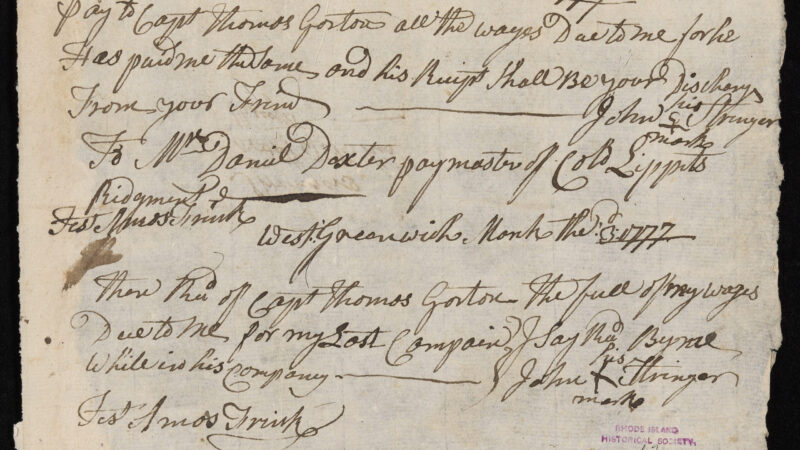 pay to Capt Thomas Gorton all the wages Due to me for he
Has paid me the Same and his Recipt Shall Be your Discharg
From your Frind
John his Stringer
mark
To Mr Daniel Dexter paymaster of Colo Lippits
Ridgment
Test Amos Frink
West Greenwich March the 3d 1777
then Recd of Capt Thomas Gorton the full of my wages
Due to Me for my Last Campain I Say Recd By me
While in his Company
John his X Stringer
mark
Test Amos Frink
RHODE ISLAND
HISTORICAL SOCIETY